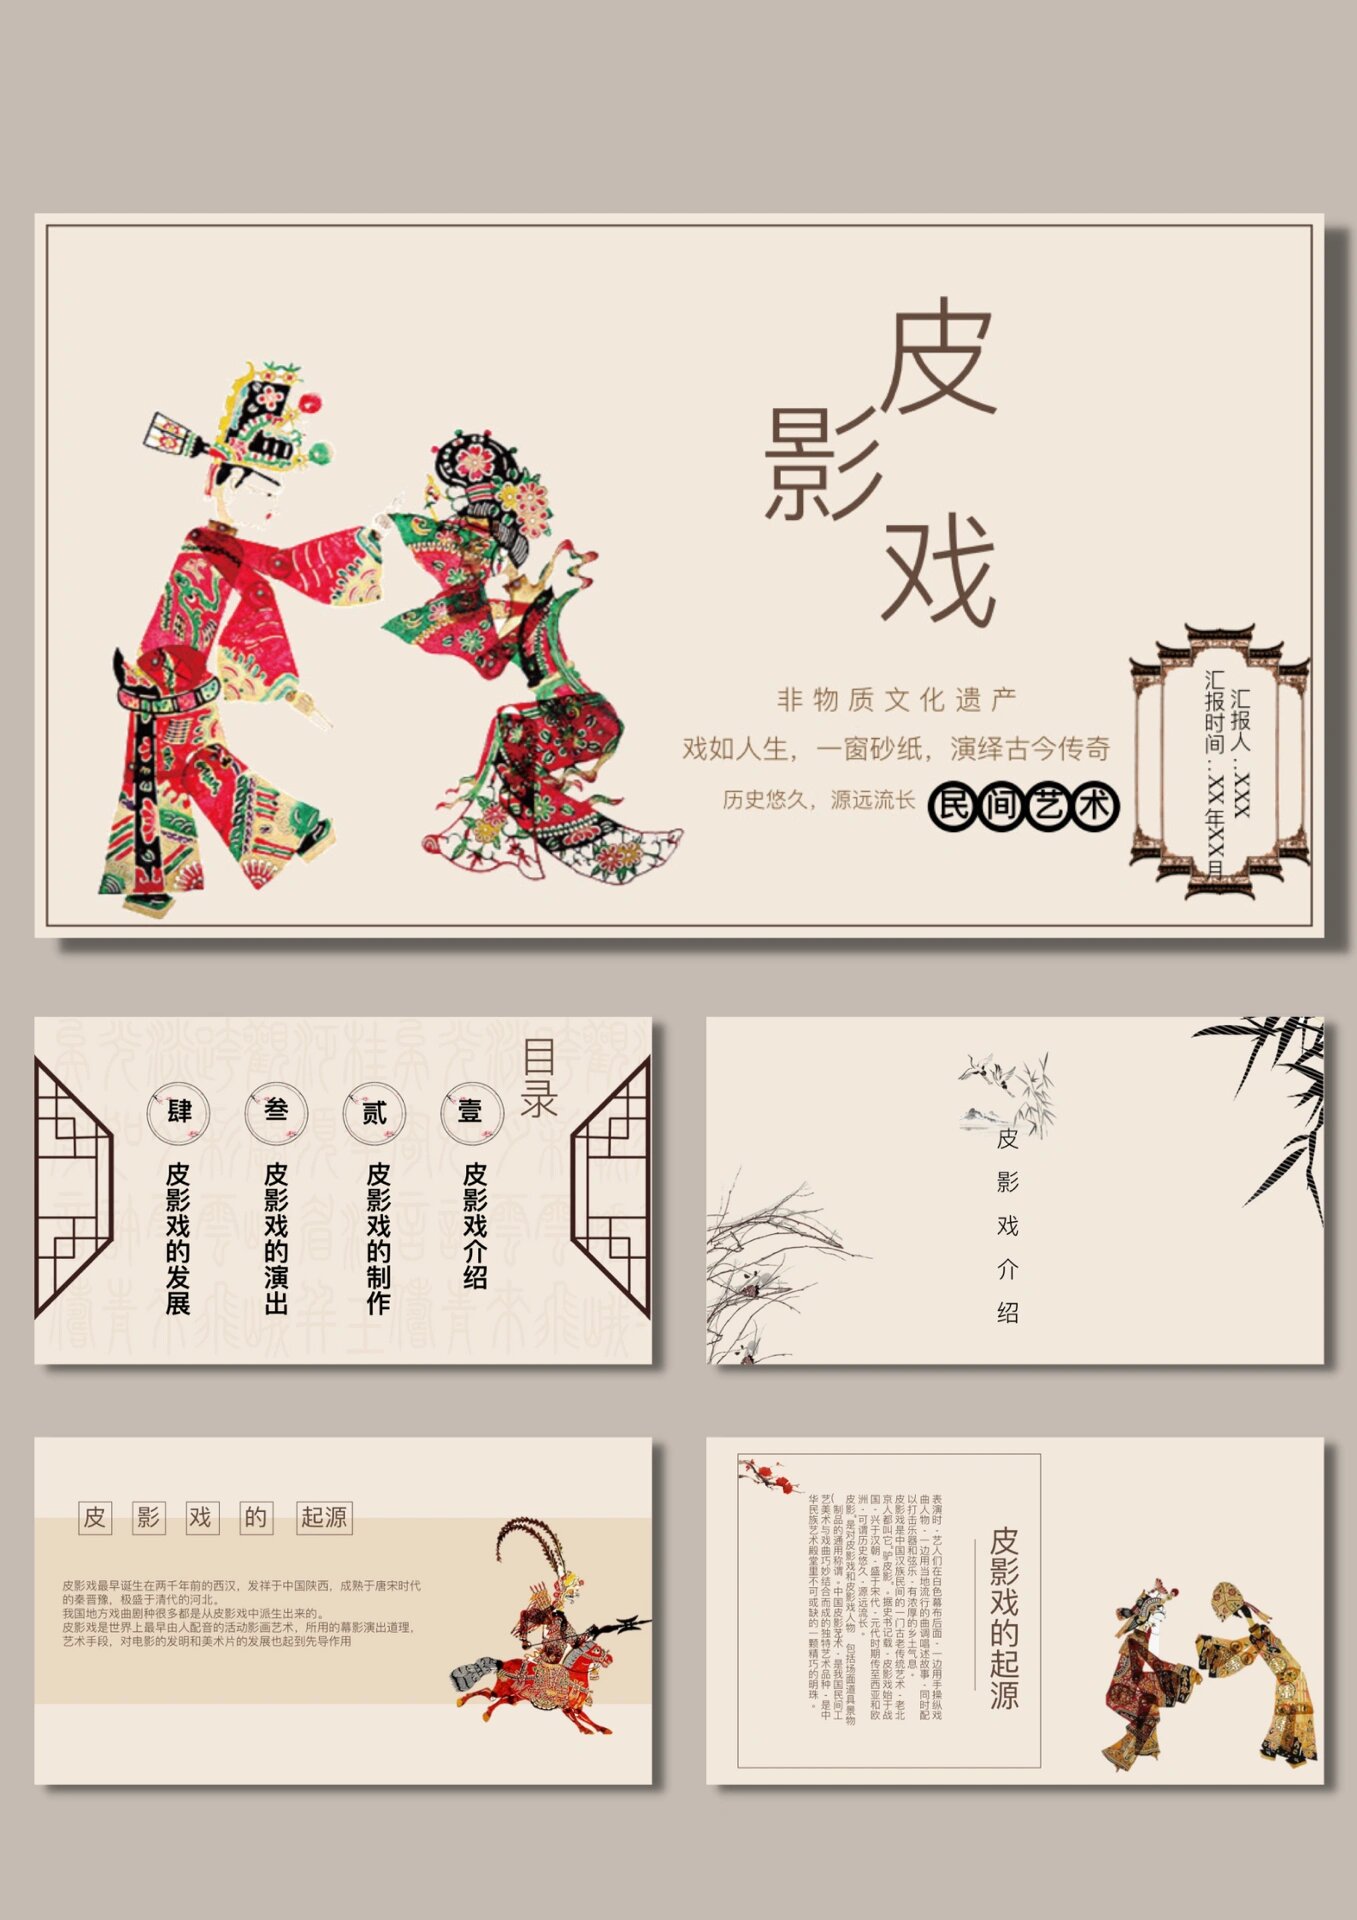 皮影戏
非物质文化遗产
戏如人生，一窗砂纸，演绎古今传奇
历史悠久，源远流长
民间艺术
汇报人：XXXX
汇报时间：XX年XX月
目录
壹
皮影戏介绍
贰
皮影戏的制作
叁
皮影戏的演出
肆
皮影戏的发展
皮影戏介绍
皮影戏的起源
皮影戏最早诞生在两千年前的西汉，发祥于中国陕西，成熟于唐宋时代
的秦晋豫，极盛于清代的河北。
我国地方戏曲剧种很多都是从皮影戏中派生出来的。
皮影戏是世界上最早由人配音的活动影画艺术，所用的幕影演出道理，
艺术手段，对电影的发明和美术片的发展也起到先导作用
皮影戏的起源
表演时，艺人们在白色幕布后面，一边用手操纵戏
曲人物，一边用当地流行的曲调唱述故事，同时配
以打击乐器和弦乐，有浓厚的乡土气息。
皮影戏是中国汉族民间的一门古老传统艺术，老北
京人都叫它“驴皮影”。据史书记载，皮影戏始于战
国，兴于汉朝，盛于宋代，元代时期传至西亚和欧
洲，可谓历史悠久，源远流长。
皮影”是对皮影戏和皮影戏人物（包括场面道具景物
）制品的通用称谓。中国皮影艺术，是我国民间工
艺美术与戏曲巧妙结合而成的独特艺术品种，是中
华民族艺术殿堂里不可或缺的一颗精巧的明珠。